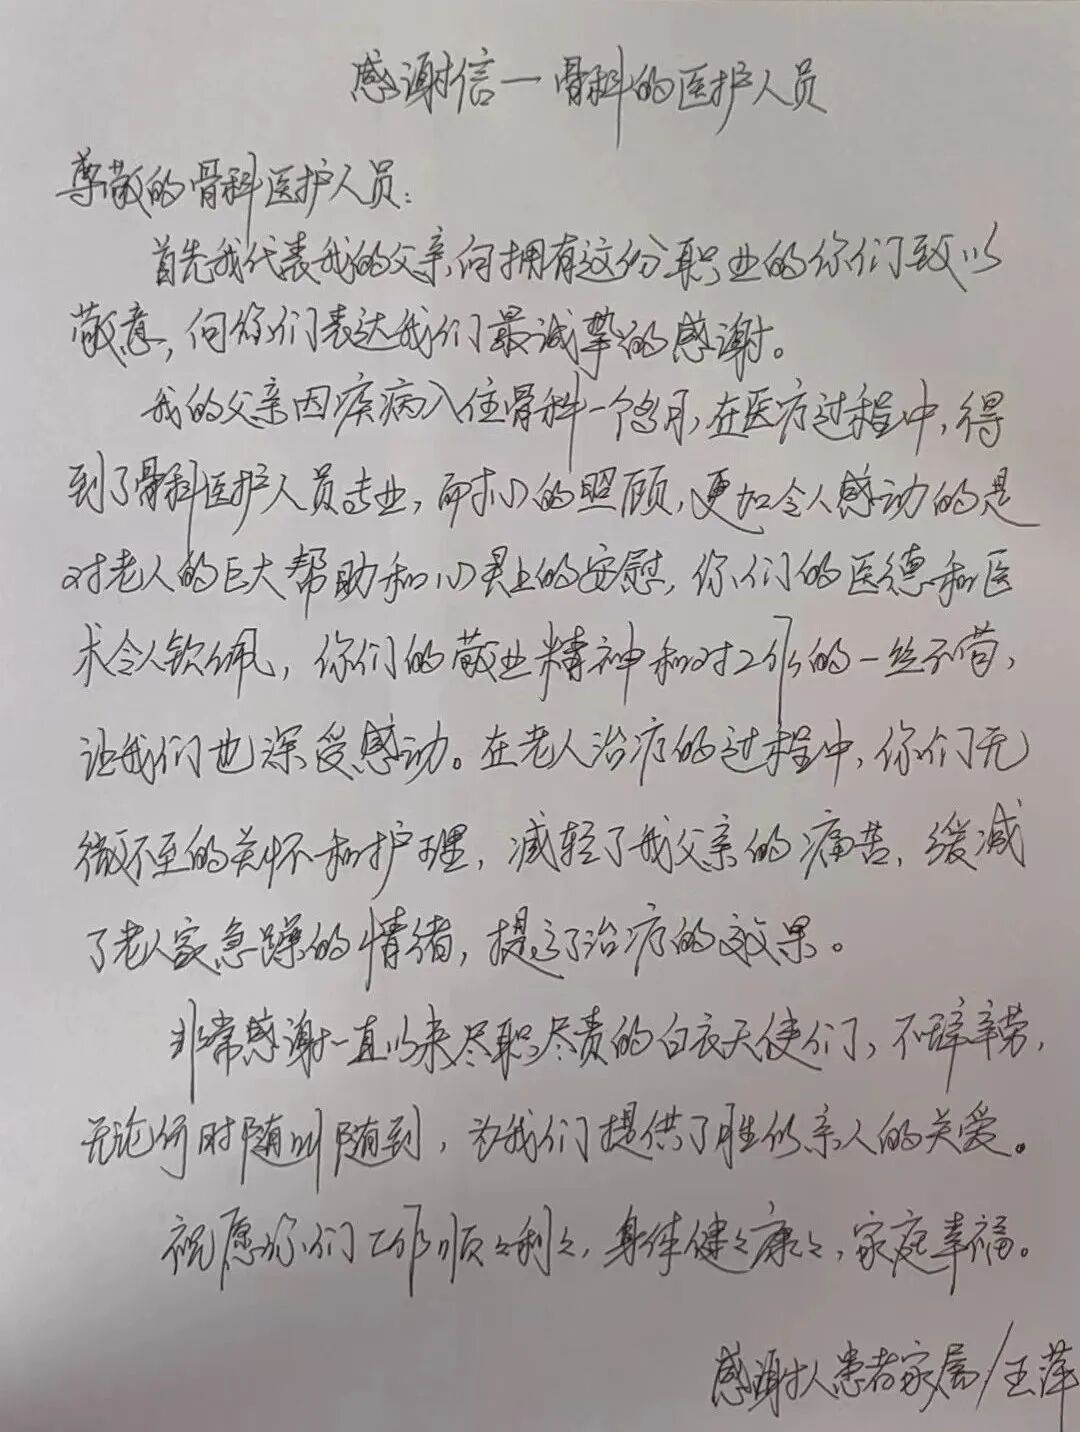 感谢信一骨科的医护人员
尊敬的骨科医护人员：
首先我代表我的父亲，向拥有这份职业的你们致以
敬意，向你们表达我们最诚挚的感谢。
我的父亲因疾病入住骨科一个多月，在医疗过程中，得
到了骨科医护人员专业，耐心的照顾，更加令人感动的是
对老人的巨大帮助和心灵上的安慰，你们的医德和医
术令人钦佩，你们的敬业精神和对工作的一丝不苟，
让我们也深受感动。在老人治疗的过程中，你们无
微不至的关怀和护理，减轻了我父亲的痛苦，缓减
了老人家急躁的情绪，提高了治疗的效果。
非常感谢一直以来尽职尽责的白衣天使们，不辞辛劳，
无论何时随叫随到，为我们提供了胜似亲人的关爱。
祝愿你们工作顺々利々，身体健々康々，家庭幸福。
感谢人患者家属/王萍